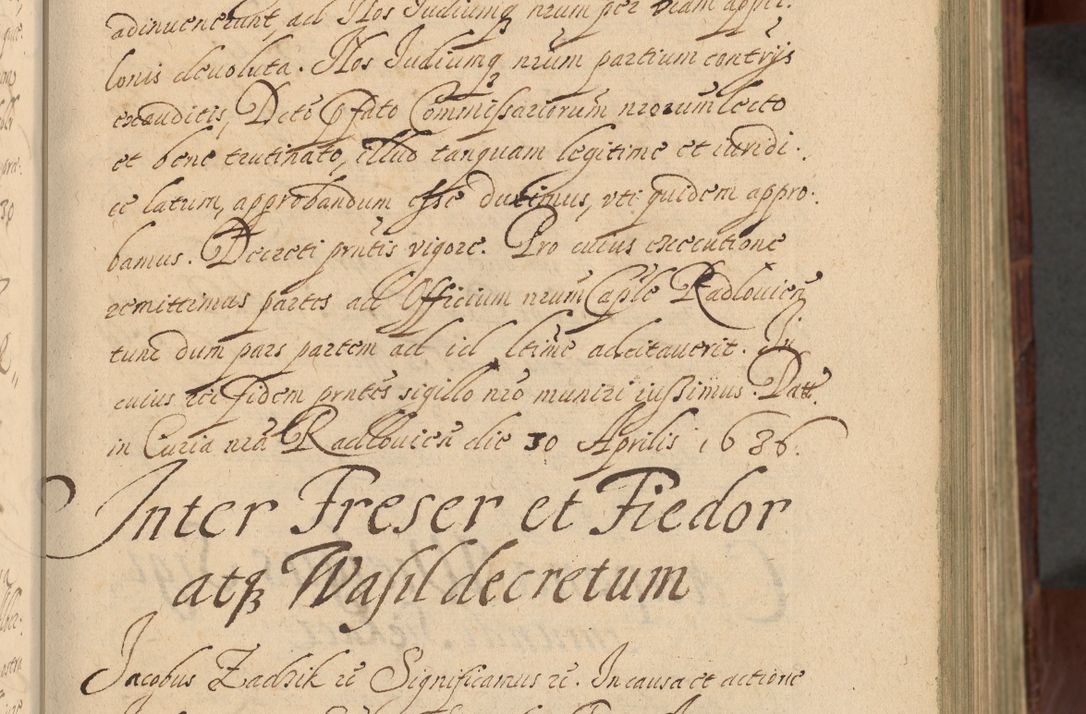 adinuenerant, ad Nos Iudiumq nrum per viam appel.
lonis deuoluta. Nos Iudiumq nrum partium contrijs
exauditis, Dcto Pfato Commissariorum nrorum lecto
et bene trutinato, illud tanquam legitime et iuridi.
ce latum, approbandum esse duximus, vti quidem appro.
bamus. Decreti prntis vigore. Pro cuius executione
remittimus partes ad Officium nrum Caple Radlouien
tunc dum pars partem ad id ltime adcitauerit. In
cuius rei fidem prntes sigillo nro muniri iussimus. Datt.
in Curia nra Radlouien die 30 Aprilis 1636.
Inter Freser et Fiedor
atq Wasil decretum
Jacobus Zadzik rc Significamus rc. In causa et actione